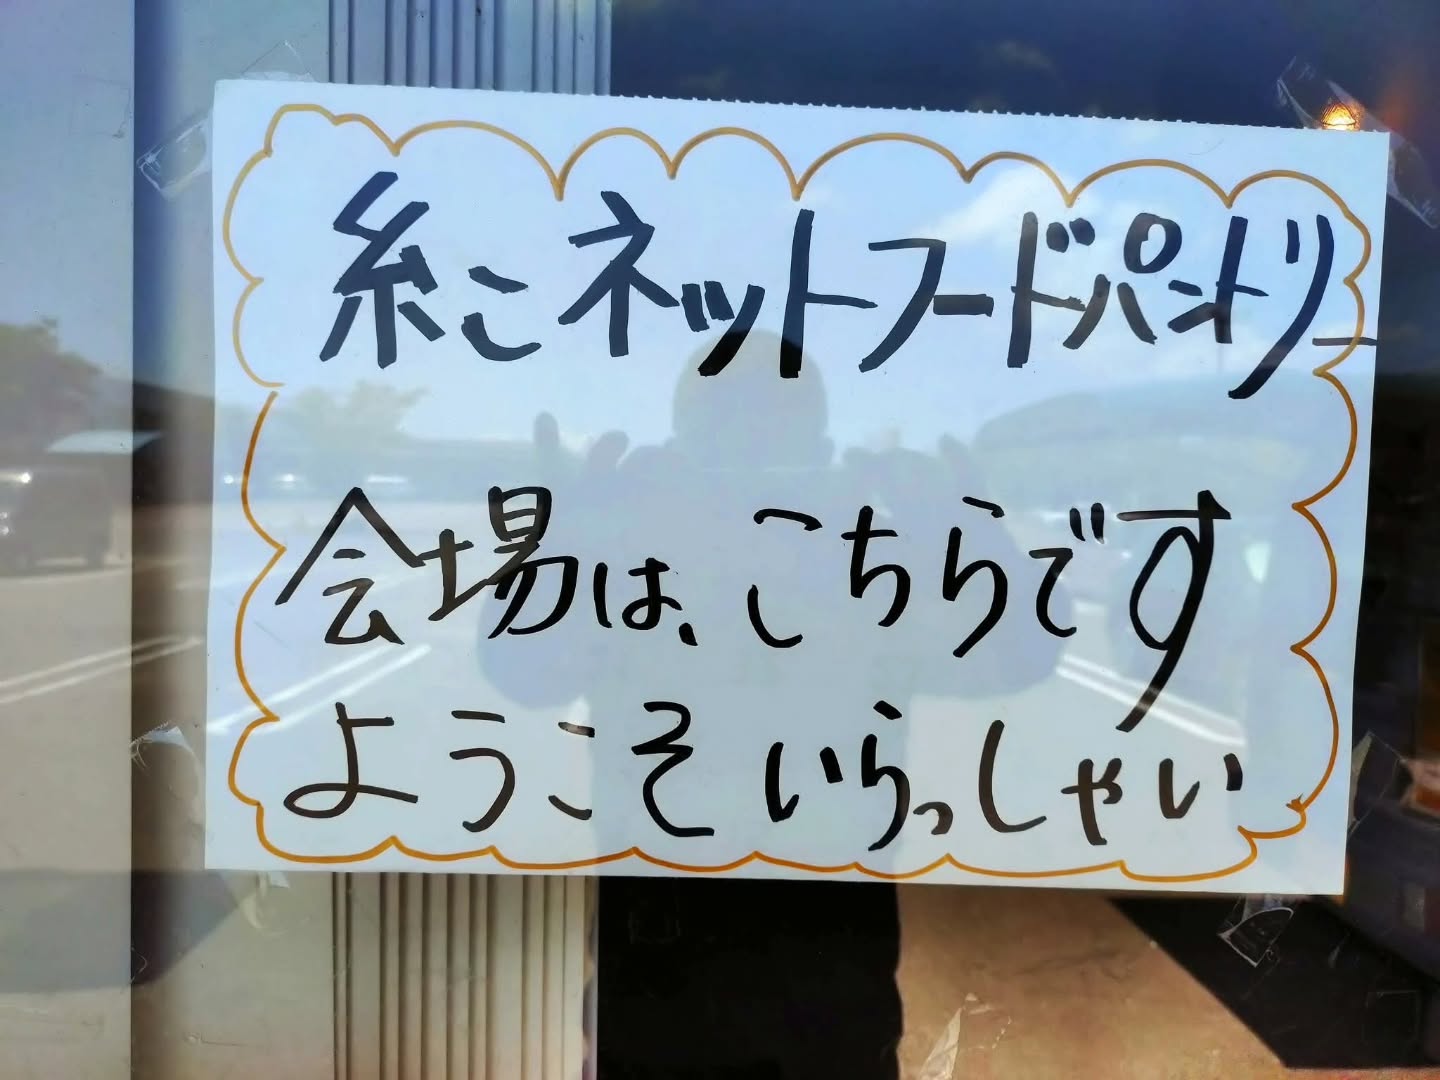 糸こネットフードパントリー
会場は、こちらです
ようこそいらっしゃい